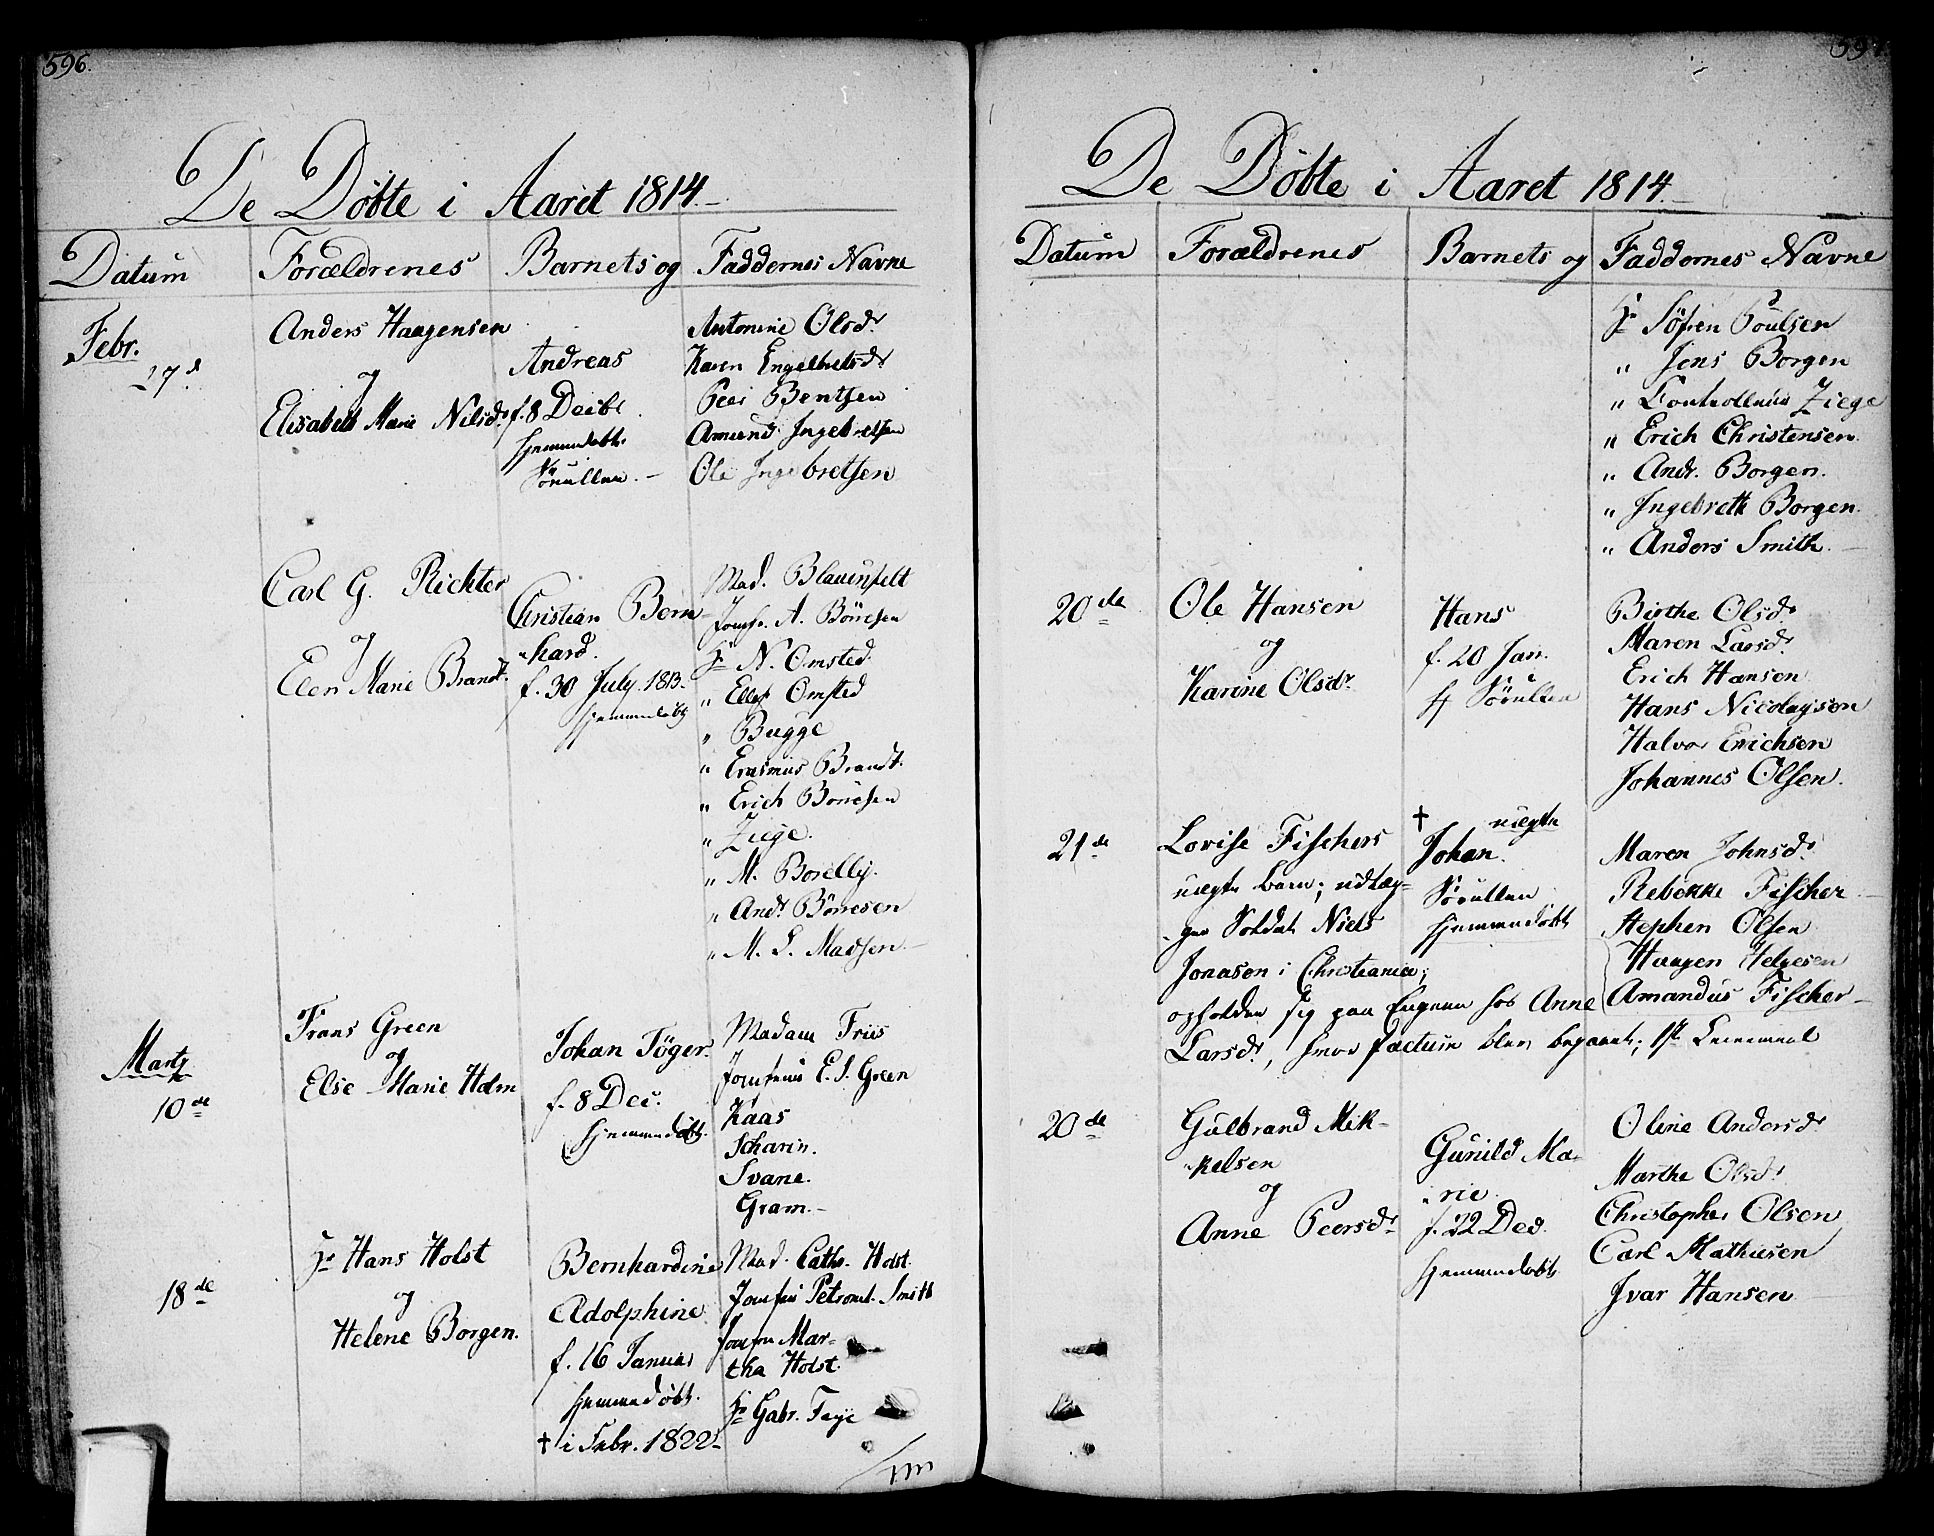 596.
De Döbte i Aaret 1814.
Datum Forældrenes Barnets og Faddernes Navne
Febr.
27d
Anders Haagensen
og
Elisabeth Marie Nilsdr
Andreas
f. 8 Decbr
hjemmedøbt
Antonine Olsdr
Karen Engelbretsdr
Peer Bentsen
Amund Ingebretsen
Ole Ingebretsen
Carl G. Richter
og
Elen Marie Brandt.
Christian Bern-
-hard.
f. 30 July. 1813.
hjemmedøbt
Mad. Blauenfelt
Jomfr. A. Börresen
Hr N. Omsted.
" Ellef Omsted
" Bugge
" Erasmus Brandt.
" Erich Börresen
" Ziege.
" M. Borelly.
" Andr Börresen
" M. L. Madsen
Martz
10de
Frans Green
og
Else Marie Holm
Johan Töger.
f. 8 Dec.
hjemmedøbt.
Madam Friis
Jomfrue E. S. Green
Kaas
Scharin.
Svane.
Gram.
18de
Hr Hans Holst
og
Helene Borgen.
Bernhardine
Adolphine
f. 16 Januar
hjemmedøbt.
† i Febr. 1822
Mad. Cathr. Holst.
Jomfru Petronel. Smith
Jomfru Mar-
tha Holst.
Hr Gabr. Feye
De Döbte i Aaret 1814.
Datum Forældrenes Barnets og Faddernes Navne
Hr Söfren Poulsen
" Jens Borgen
" Controlleur Ziege
" Erich Christensen.
" Andr. Borgen.
" Ingebreth Borgen.
" Anders Smith.
20de
Ole Hansen
og
Karine Olsdr
Hans
f. 20 Jan.
Birthe Olsdr
Maren Larsdr
Erich Hansen
Hans Nicolaysen
Halvor Erichsen
Johannes Olsen.
21de
Lovise Fischers
uægte barn; udlæg-
-ger Soldat Niels
Jonason i Christiania;
opholder sig paa Engene hos Anne
Larsdr, hvor factum blev begaaet; 1ste Leiermaal
† uægte
Johan.
hjemmedøbt
Maren Johnsdr
Rebekke Fischer
Stephen Olsen
Haagen Helgesen
Amandus Fischer
20de
Gulbrand Mik-
-kelsen
og
Anne Peersdr
Gunild Ma-
-rie.
f. 22 Dec.
hjemmedøbt
Oline Andersdr
Marthe Olsdr
Christopher Olsen
Carl Mathiesen
Ivar Hansen